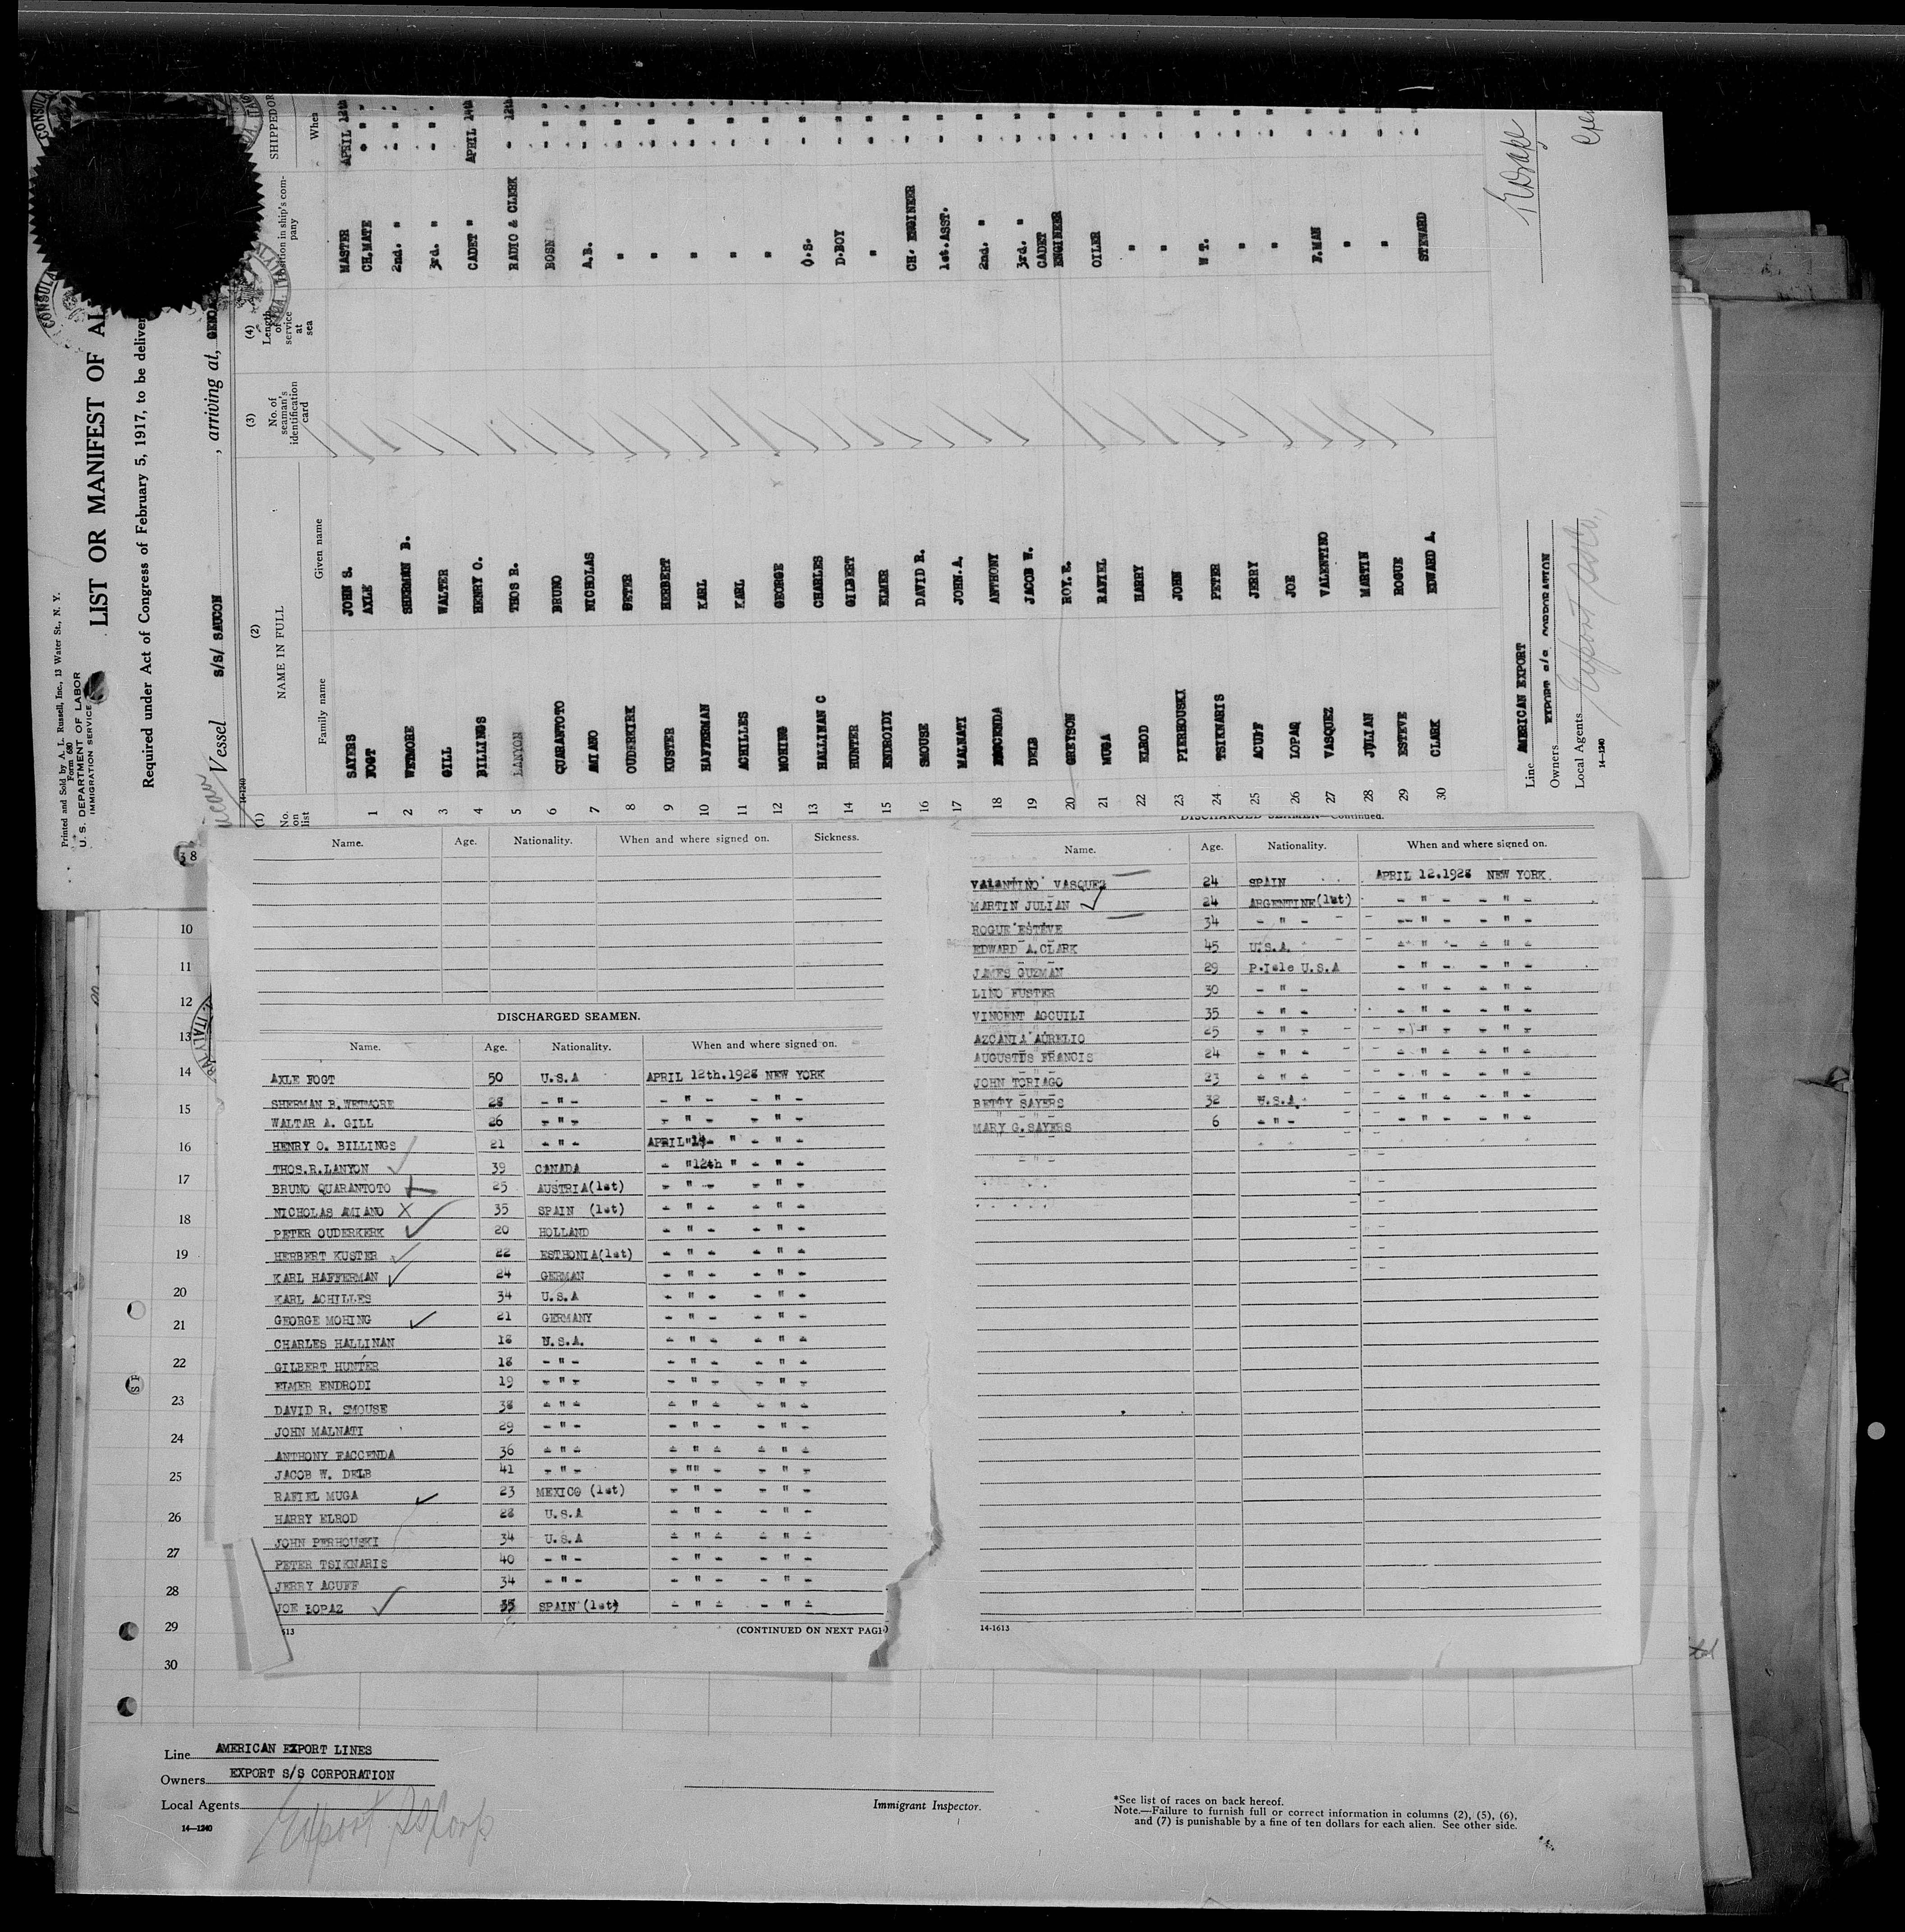 Printed and Sold by A. L. Russell, Inc., 13 Water St., N. Y.
Form 680
U. S. DEPARTMENT OF LABOR
IMMIGRATION SERVICE
LIST OR MANIFEST OF AL
Required under Act of Congress of February 5, 1917, to be deliver
Vessel S/S/ SAUCON , arriving at, GENOA
14-1240
(1) (2) (3) (4)
No. on list NAME IN FULL No. of seaman's identification card Length of service at sea Position in ship's company SHIPPED OR
Family name Given name When
SAYERS JOHN S. MASTER APRIL 12th
1 FOGT AXLE CH.MATE " "
2 WETMORE SHERMAN B. 2nd. " - "
3 GILL WALTER 3rd. " - "
4 BILLINGS HENRY O. CADET " APRIL 14th
5 LANYON THOS R. RADIO & CLERK - 12th
6 QUARANTOTO BRUNO BOSN - "
7 AMIANO NICHOLAS A.B. - "
8 OUDERKIRK PETER " - "
9 KUSTER HERBERT " - "
10 HAFFERMAN KARL " - "
11 ACHILLES KARL " - "
12 MOHING GEORGE " - "
13 HALLINAN C CHARLES O.S. - "
14 HUNTER GILBERT D.BOY - "
15 ENDROIDI ELMER " - "
16 SMOUSE DAVID R. CH. ENGINEER - "
17 MALNATI JOHN. A. 1st.ASST. - "
18 ANTHONY 2nd. " - "
19 DELB JACOB W. 3rd. " - "
20 GREYSON ROY. E. CADET ENGINEER - "
21 MUGA RAFIEL OILER - "
22 ELROD HARRY " - "
23 PIERHOUSKI JOHN " - "
24 TSIKNARIS PETER W.T. - "
25 ACUFF JERRY " - "
26 LOPAQ JOE " - "
27 VASQUEZ VALENTINO F.MAN - "
28 JULIAN MARTIN " - "
29 ESTEVE ROGUE " - "
30 CLARK EDWARD A. STEWARD - "
Line AMERICAN EXPORT
Owners EXPORT s/s CORPORATION
Local Agents Export SSCo.,
14-1240
38
Name. Age. Nationality. When and where signed on. Sickness.
DISCHARGED SEAMEN.
Name. Age. Nationality. When and where signed on.
AXLE FOGT 50 U.S.A APRIL 12th.1928 NEW YORK
SHERMAN B.WETMORE 28 - " - - " - - " -
WALTAR A. GILL 26 - " - - " - - " -
HENRY O. BILLINGS 21 - " - APRIL"14- " - " -
THOS.R.LANYON 39 CANADA - "12th " - " -
BRUNO QUARANTOTO 25 AUSTRIA(1st) - " - - " -
NICHOLAS AMIANO 35 SPAIN (1st) - " - - " -
PETER OUDERKERK 20 HOLLAND - " - - " -
HERBERT KUSTER 22 ESTHONIA(1st) - " - - " -
KARL HAFFERMAN 24 GERMAN - " - - " -
KARL ACHILLES 34 U.S.A - " - - " -
GEORGE MOHING 21 GERMANY - " - - " -
CHARLES HALLINAN 18 U.S.A. - " - - " -
GILBERT HUNTER 18 - " - - " - - " -
ELMER ENDRODI 19 - " - - " - - " -
DAVID R. SMOUSE 38 - " - - " - - " -
JOHN MALNATI 29 - " - - " - - " -
ANTHONY FACCENDA 36 - " - - " - - " -
JACOB W. DELB 41 - " - - "" - - " -
RAFIEL MUGA 23 MEXICO (1st) - " - - " -
HARRY ELROD 28 U.S.A - " - - " -
JOHN PERHOUSKI 34 U.S.A - " - - " -
PETER TSIKNARIS 40 - " - - " - - " -
JERRY ACUFF 34 - " - - " - - " -
JOE LOPAZ 35 SPAIN (1st) - " - - " -
613 (CONTINUED ON NEXT PAGE)
DISCHARGED SEAMEN—Continued.
Name. Age. Nationality. When and where signed on.
VALANTINO VASQUEZ 24 SPAIN APRIL 12.1928 NEW YORK.
MARTIN JULIAN 24 ARGENTINE(1st) - " - - " -
ROGUE ESTEVE 34 - " - - " - - " -
EDWARD A.CLARK 45 U.S.A. - " - - " -
JAMES GUZMAN 29 P.Isle U.S.A - " - - " -
LINO FUSTER 30 - " - - " - - " -
VINCENT AGOUILI 35 - " - - " - - " -
AZCANIA AURELIO 25 - " - - " - - " -
AUGUSTUS FRANCIS 24 - " - - " - - " -
JOHN TORIAGO 23 - " - - " - - " -
BETTY SAYERS 32 U.S.A. - " - - " -
MARY G.SAYERS 6 - " - - " - - " -
14-1613
10
11
12
13
14
15
16
17
18
19
20
21
22
23
24
25
26
27
28
29
30
Line AMERICAN EXPORT LINES
Owners EXPORT S/S CORPORATION
Local Agents Export SSCorp
14—1240
Immigrant Inspector.
*See list of races on back hereof.
Note.—Failure to furnish full or correct information in columns (2), (5), (6),
and (7) is punishable by a fine of ten dollars for each alien. See other side.